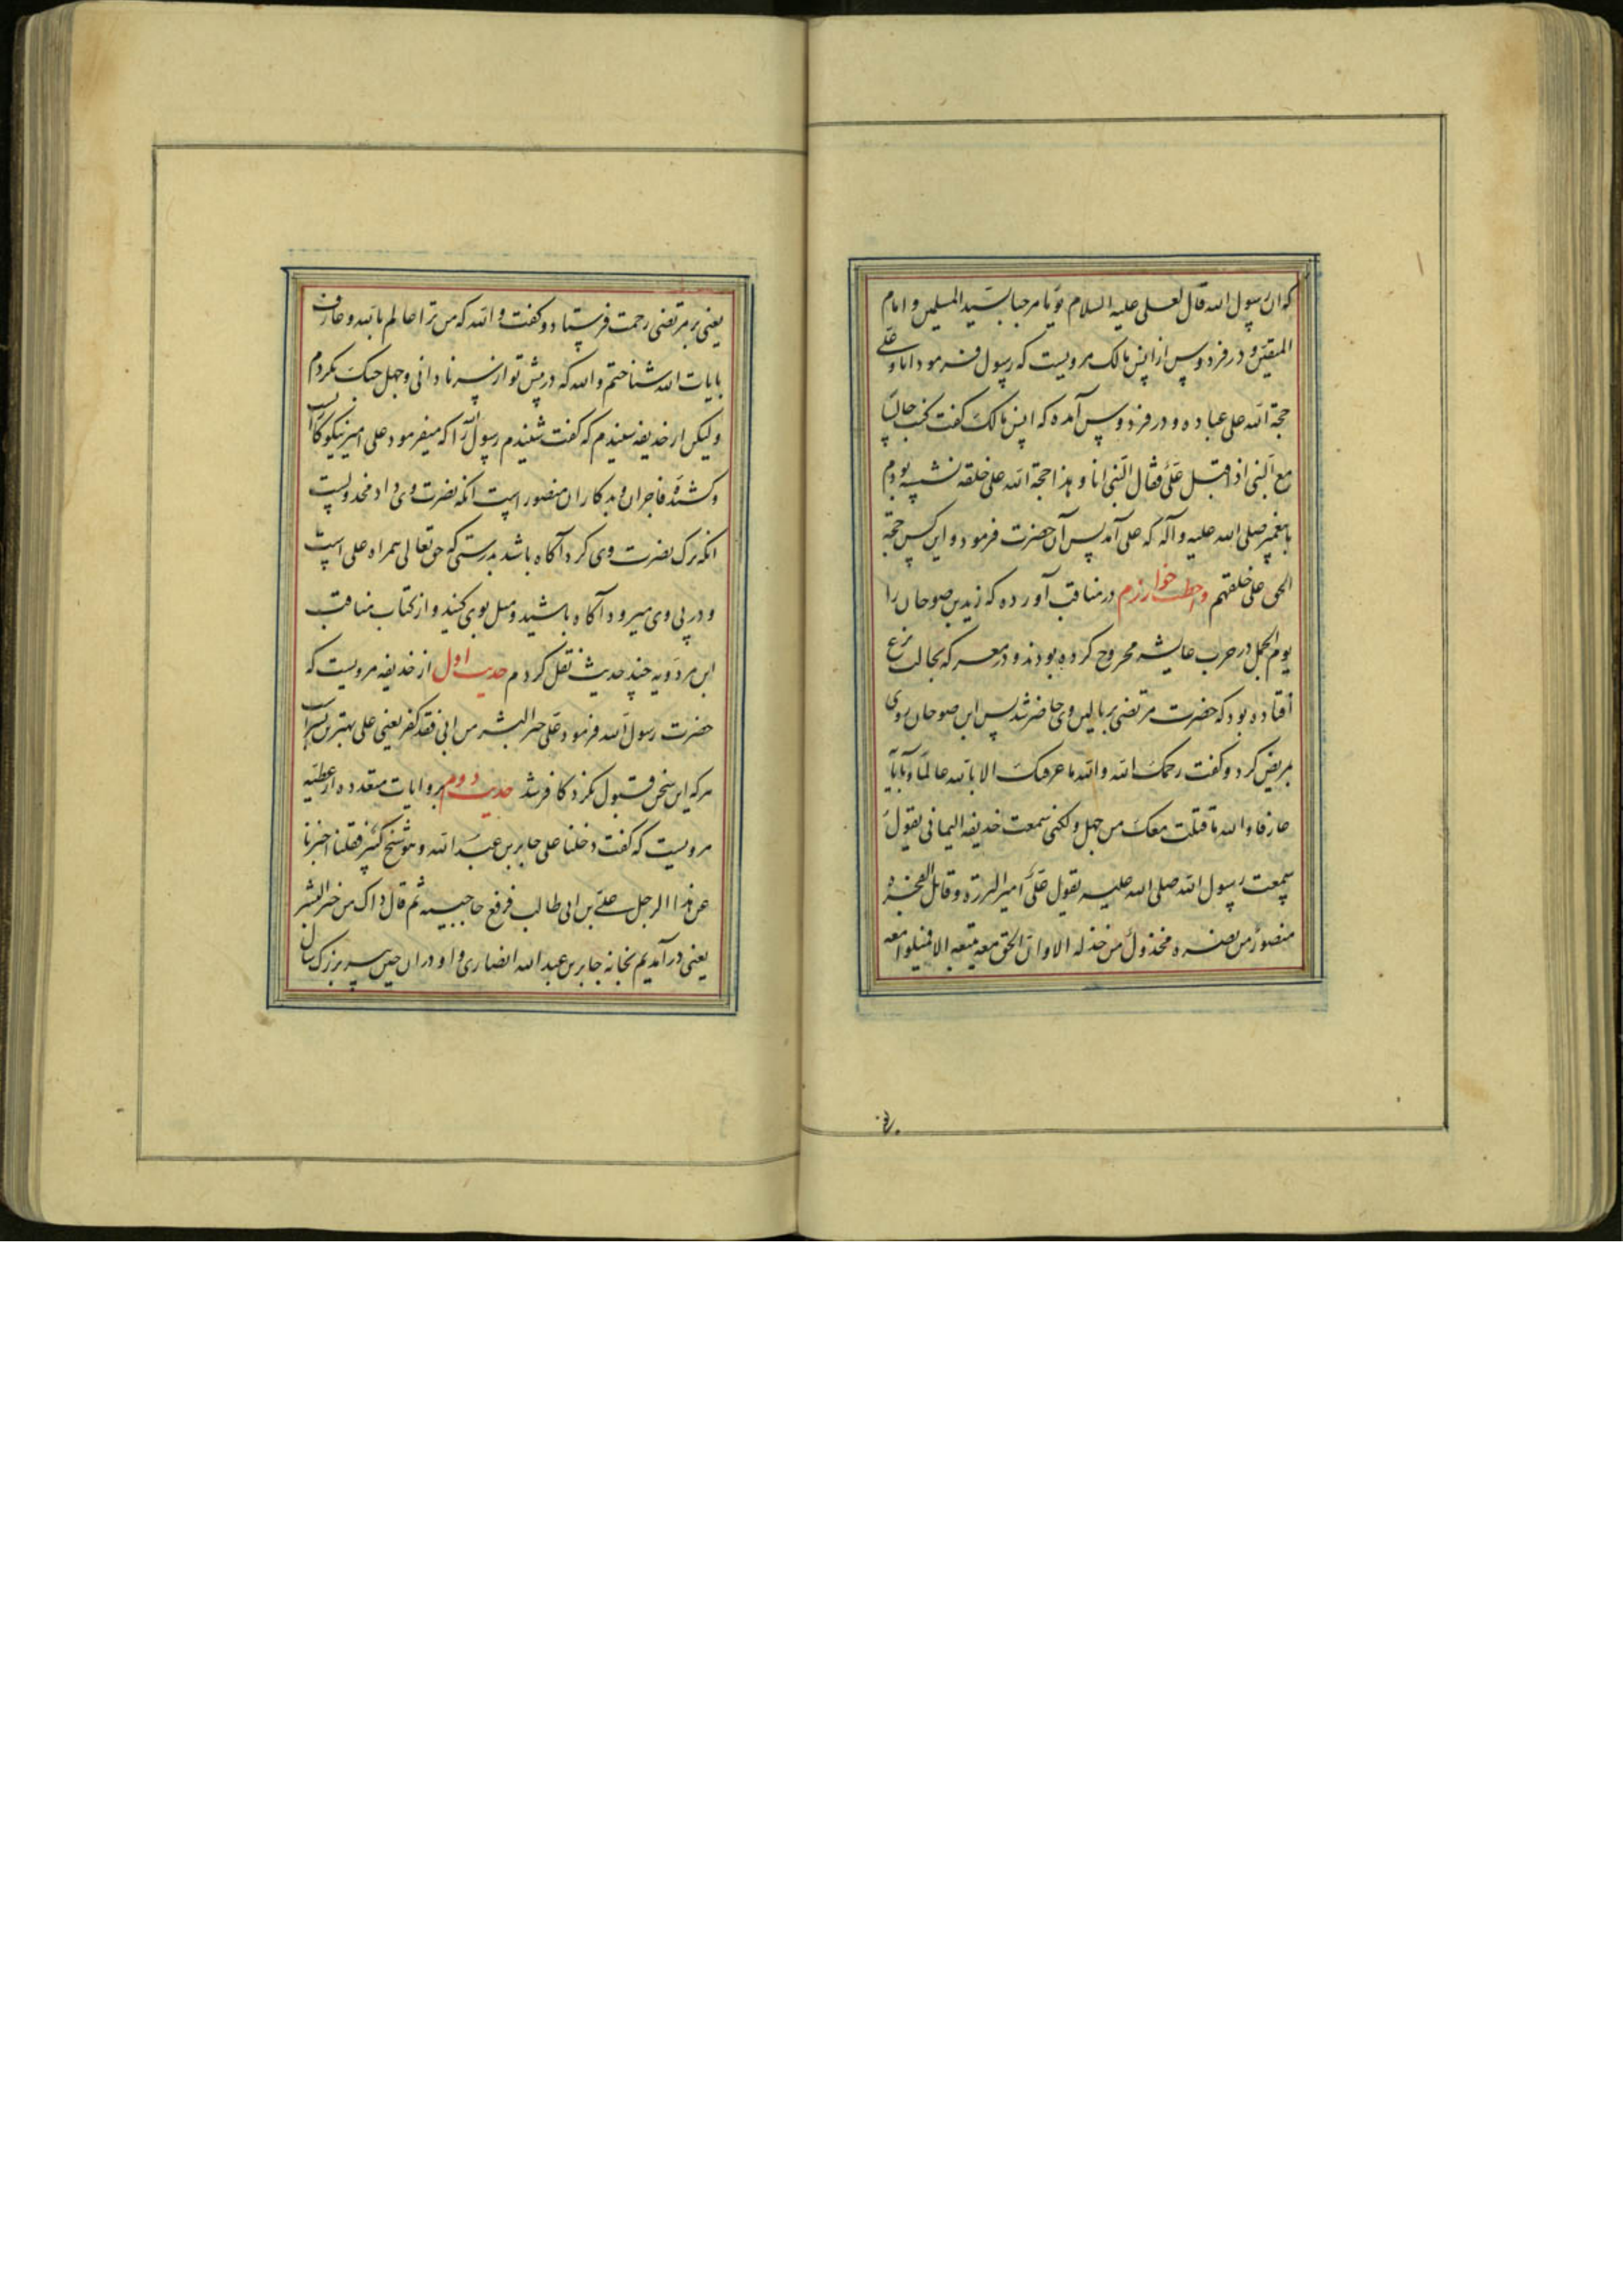 که ان رسول الله قال لعلی علیه السلام یوما مرحبا بسید المسلمین و امام
المتقین و در فردوس از انس مالک مرویست که رسول فرمود انا و علی
حجة الله علی عباده و در فردوس آمده که انس مالک گفت کنت جالسا
مع النبی اذ اقبل علی فقال النبی انا و هذا حجة الله علی خلقه نشسته بودم
با پیغمبر صلی الله علیه و آله که علی آمد پس آن حضرت فرمود و این کس حجة
علی خلقهم و اخطب خوارزم در مناقب آورده که زید بن صوحان را
یوم الجمل در حرب عایشه مجروح کرده بودند و در معرکه بحالت نزع
افتاده بود که حضرت مرتضی بر بالین وی حاضر شد پس ابن صوحان روی
کرد و گفت رحمک الله والله ما عرفتک الا بالله عالما و بآیاته
عارفا والله ما قتلت معک من جهل ولکنی سمعت خدیفه الیمانی یقول
سمعت رسول الله صلی الله علیه یقول علی امیر البررة و قاتل الفجره
منصور من نصره مخذول من خذله الا و ان الحق معه یتبعه الا فمیلوا معه
یعنی بر مرتضی رحمت فرستاد و گفت والله که من ترا عالم بالله و عارف
بایات الله شناختم والله که در پیش تو از سر نادانی و جهل جنگ نکردم
ولیکن از خدیفه شنیدم که گفت شنیدم رسول را که میفرمود علی امیر نیکوکارانست
و کشندۀ فاجران و بدکاران منصور است انکه نصرت وی داد مخذولست
انکه ترک نصرت وی کرد آگاه باشد بدرستی که حق تعالی همراه علی است
و در پی وی میرود آگاه باشید و میل بوی کنید و از کتاب مناقب
ابن مردویه چند حدیث نقل کردم حدیث اول از خدیفه مرویست که
حضرت رسول الله فرمود علی خیر البشر من ابی فقد کفر یعنی علی بهترین بشر است
هر که این سخن قبول نکرد کافر شد حدیث دوم بروایات متعدده از عطیه
مرویست که گفت دخلنا علی جابر بن عبد الله و هو شیخ کبیر فقلنا اخبرنا
عن هذا الرجل علی بن ابی طالب فرفع حاجبیه ثم قال ذاک من خیر البشر
یعنی در آمدیم بخانه جابر بن عبد الله انصاری و او در ان حین پیر بزرگ سال